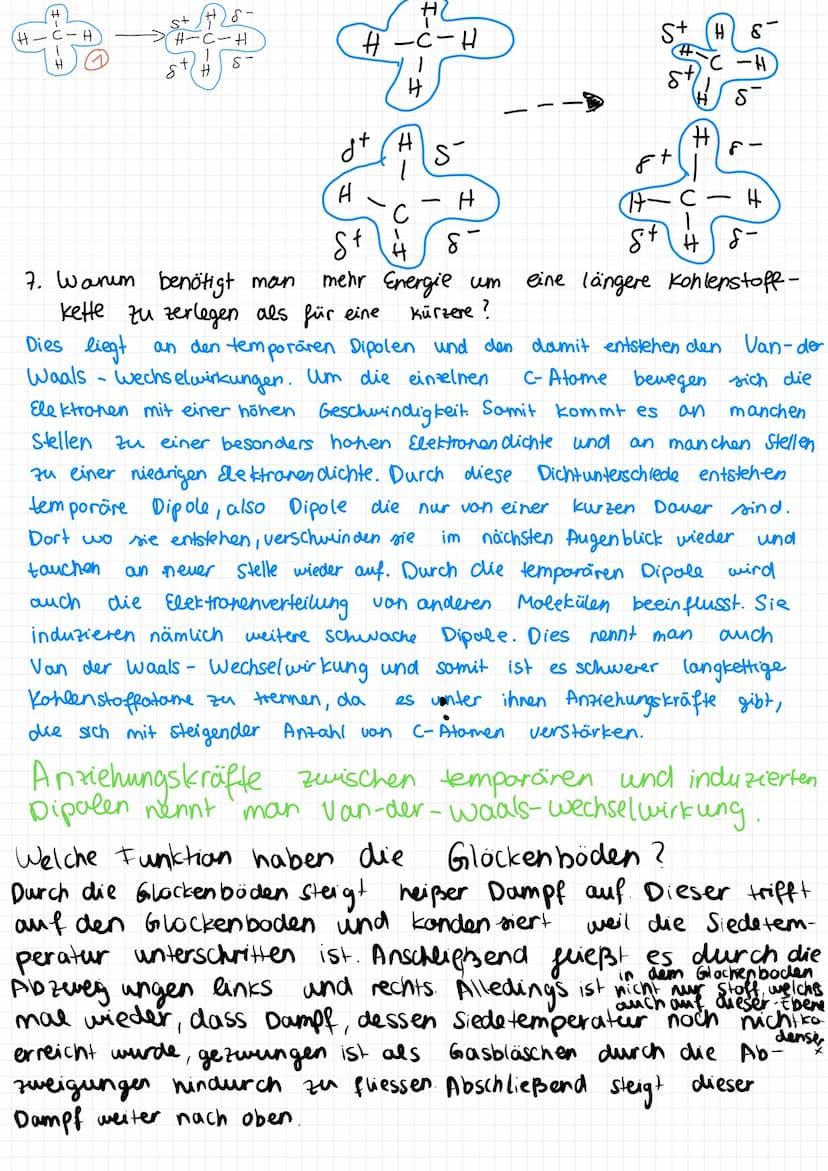 H
H – C – H
H
1
δ+ H δ-
H – C – H
δ+ H δ-
H
H – C – H
H
δ+ H δ-
H – C – H
δ+ H δ-
δ+ H δ-
H – C – H
δ+ H δ-
δ+ H δ-
H – C – H
δ+ H δ-
7. Warum benötigt man mehr Energie um eine längere Kohlenstoff-
kette zu zerlegen als für eine kürzere?
Dies liegt an den temporären Dipolen und den damit entstehenden Van-der
Waals - Wechselwirkungen. Um die einzelnen C-Atome bewegen sich die
Elektronen mit einer höhen Geschwindigkeit. Somit kommt es an manchen
Stellen zu einer besonders hohen Elektronendichte und an manchen Stellen
zu einer niedrigen Elektronendichte. Durch diese Dichtunterschiede entstehen
temporäre Dipole, also Dipole die nur von einer kurzen Dauer sind.
Dort wo sie entstehen, verschwinden sie im nächsten Augenblick wieder und
tauchen an neuer Stelle wieder auf. Durch die temporären Dipole wird
auch die Elektronenverteilung von anderen Molekülen beeinflusst. Sie
induzieren nämlich weitere schwache Dipole. Dies nennt man auch
Van der Waals - Wechselwirkung und somit ist es schwerer langkettige
Kohlenstoffatome zu trennen, da es unter ihnen Anziehungskräfte gibt,
die sich mit steigender Anzahl von C-Atomen verstärken.
Anziehungskräfte zwischen temporären und induzierten
Dipolen nennt man Van-der-Waals-Wechselwirkung.
Welche Funktion haben die Glockenböden?
Durch die Glockenböden steigt heißer Dampf auf. Dieser trifft
auf den Glockenboden und kondensiert weil die Siedetem-
peratur unterschritten ist. Anschließend fließt es durch die
Abzweigungen links und rechts. Alledings ist in dem Glockenboden nicht nur Stoff, welchs auch auf dieser Ebene
mal wieder, dass Dampf, dessen Siedetemperatur noch nicht
erreicht wurde, gezwungen ist als Gasbläschen durch die Ab-
zweigungen hindurch zu fliessen. Abschließend steigt dieser
Dampf weiter nach oben.